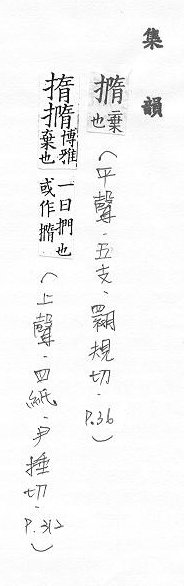 集韻
撱棄也(平聲.五支.翾規切.P.36)
撱博雅棄也一曰捫也或作撱(上聲.四紙.尹捶切.P.312)